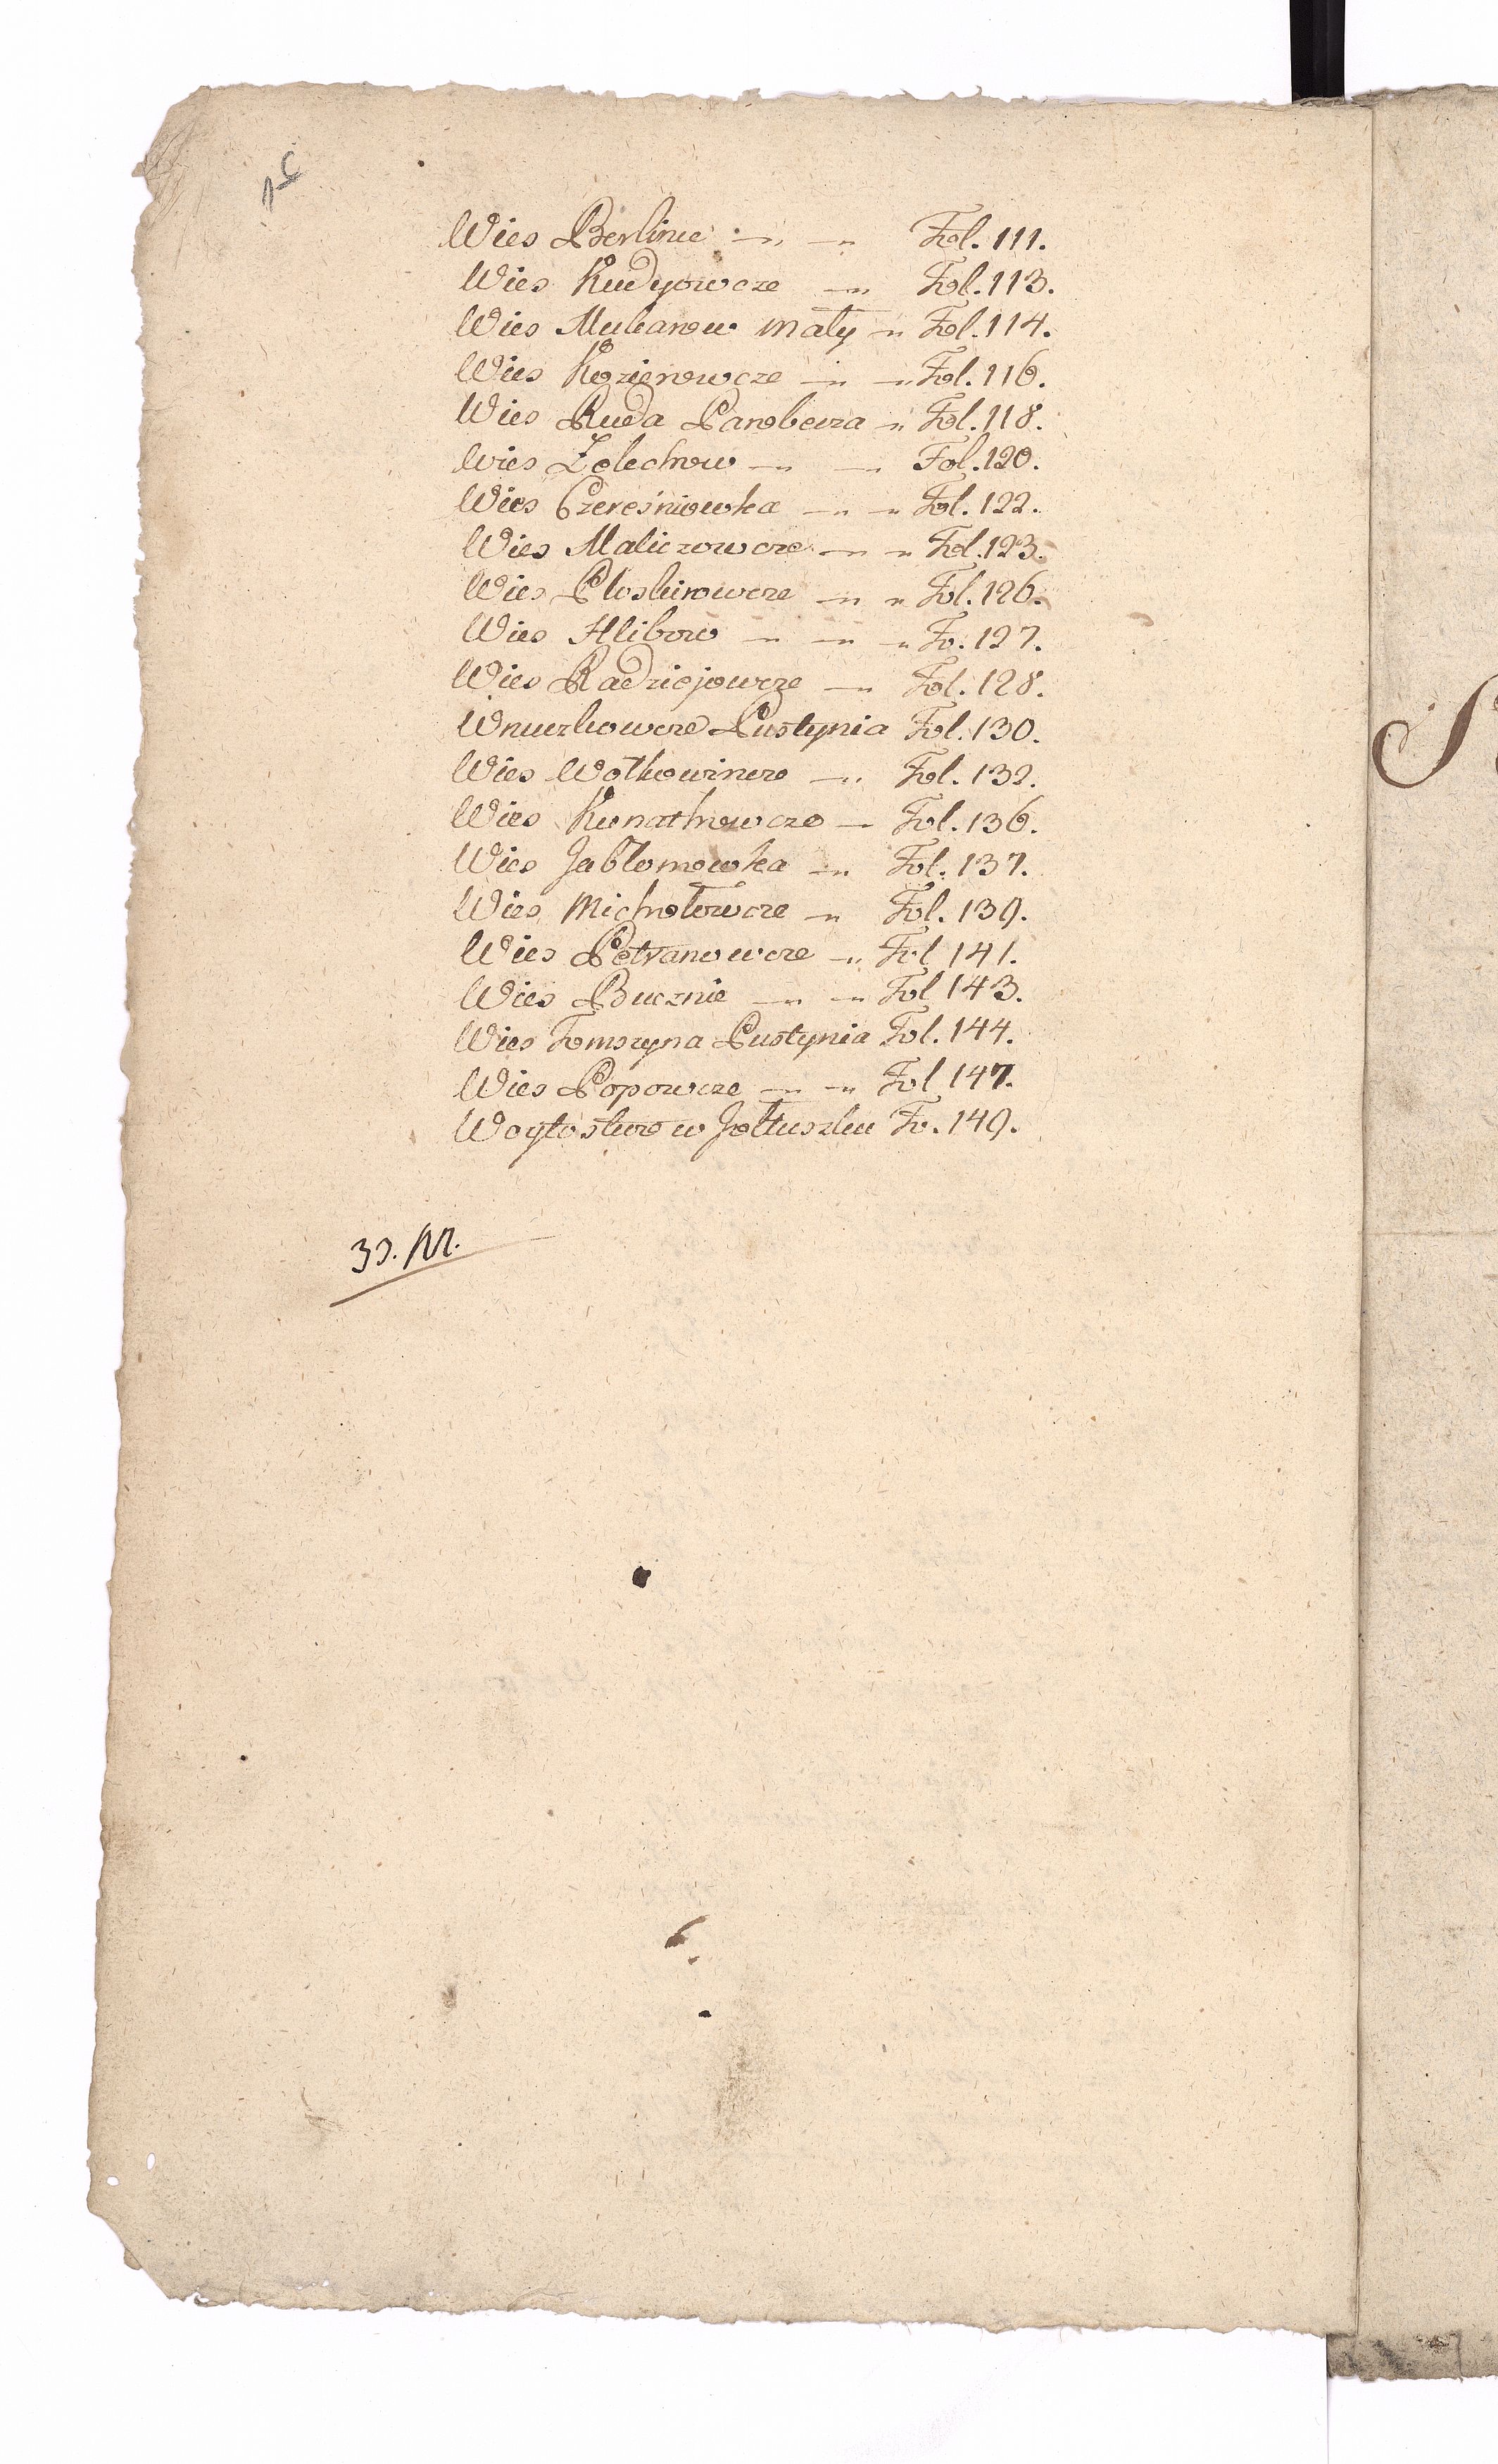 Wies Berlince — — Fol. 111.
Wies Kudyowcze — Fol. 113.
Wies Mukarow mały — Fol. 114.
Wies Kozierowcze — — Fol. 116.
Wies Ruda — Fol. 118.
Wies Zolechow — — Fol. 120.
Wies Czereśniowka — — Fol. 122.
Wies Maliczowcze — — Fol. 123.
Wies Ploskirowcze — — Fol. 126.
Wies Hlibow — — — Fo. 127.
Wies Radziejowcze — Fol. 128.
Wnuczkowcze Pustynia Fol. 130.
Wies Wołkowince — Fol. 132.
Wies Kunathowcze — Fol. 136.
Wies Jabłonowka — Fol. 137.
Wies Michołowcze — Fol. 139.
Wies Petranowcze — Fol 141.
Wies Bucznie — — Fol 143.
Wies Tomszyna Pustynia Fol. 144.
Wies Popowcze — — Fol 147.
Woytostwo w Jołtuszku Fo. 149.